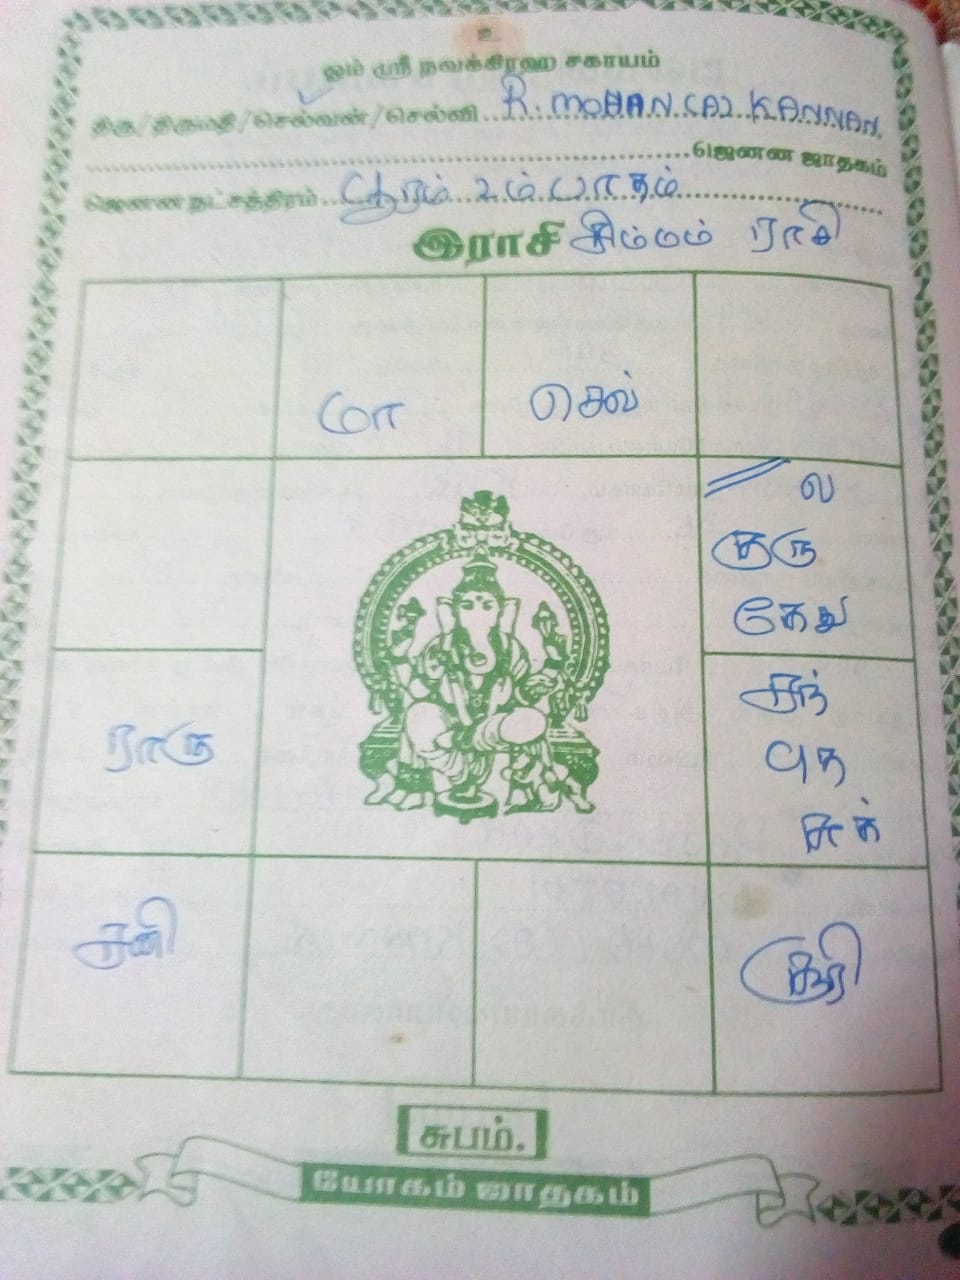 உ
ஓம் ஸ்ரீ நவக்கிரஹ சகாயம்
திரு/திருமதி/செல்வன்/செல்வி R. MOHAN (A) KANNAN
ஜெனன ஜாதகம்
ஜெனன நட்சத்திரம் பூரம் 2ம் பாதம்
இராசி சிம்மம் ராசி
மா செவ்
ல
குரு
கேது
சந்
ராகு புத
சுக்
சனி சூரி
சுபம்.
யோகம் ஜாதகம்